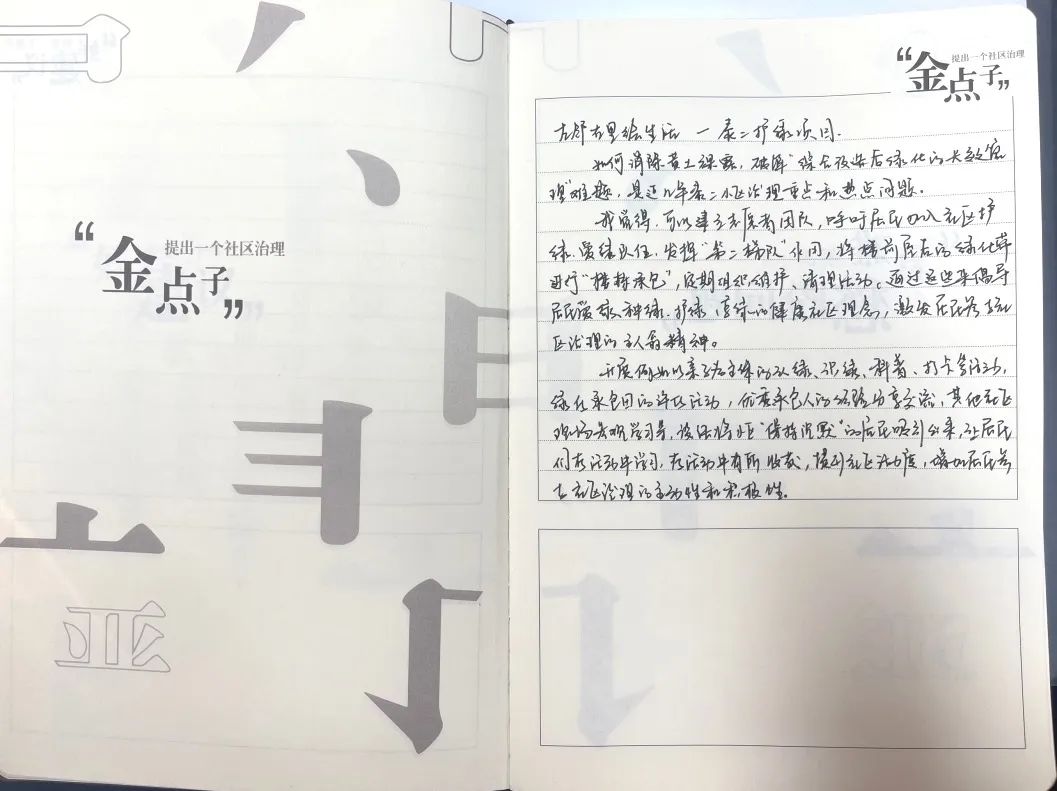 “金点子”
提出一个社区治理
亚
“金点子”
提出一个社区治理
左邻右里绘生活 一泰二护绿项目.
如何消除黄土裸露，破解“综合改造后绿化的长效管
理”难题，是近几年泰二小区治理重点和热点问题。
我觉得，可以建立志愿者团队，呼吁居民加入社区护
绿、爱绿队伍，发挥“第二梯队”作用，将楼前屋后的绿化带
进行“楼栋承包”，定期组织维护、清理活动。通过这些来倡导
居民爱绿、种绿、护绿、享绿的健康社区理念，激发居民参与社
区治理的主人翁精神。
开展例如以亲子为主体的认绿、识绿、科普、打卡等活动，
绿化承包园的评比活动，优秀承包人的经验分享交流，其他社区
现场参观学习等，设法将小区“保持沉默”的居民吸引出来，让居民
们在活动中学习，在活动中有所收获，提升社区活力度，增加居民参
与社区治理的主动性和积极性.